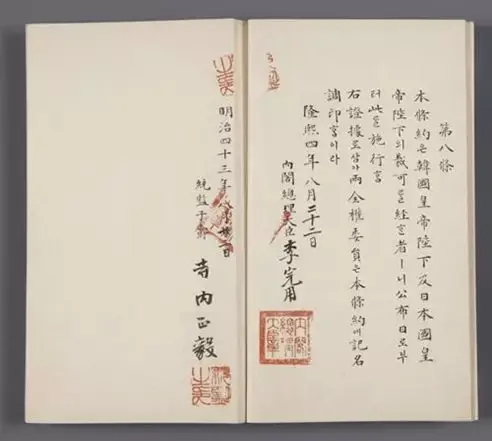 第八條
本條約은韓國皇帝陛下及日本國皇
帝陛下의裁可를經호者ㅣ니公布日로브
터此를施行홈
右證據로삼아兩全權委員은本條約에記名
調印홈이라
隆熙四年八月二十二日
內閣總理大臣 李完用
明治四十三年八月廿二日
統監子爵 寺內正毅